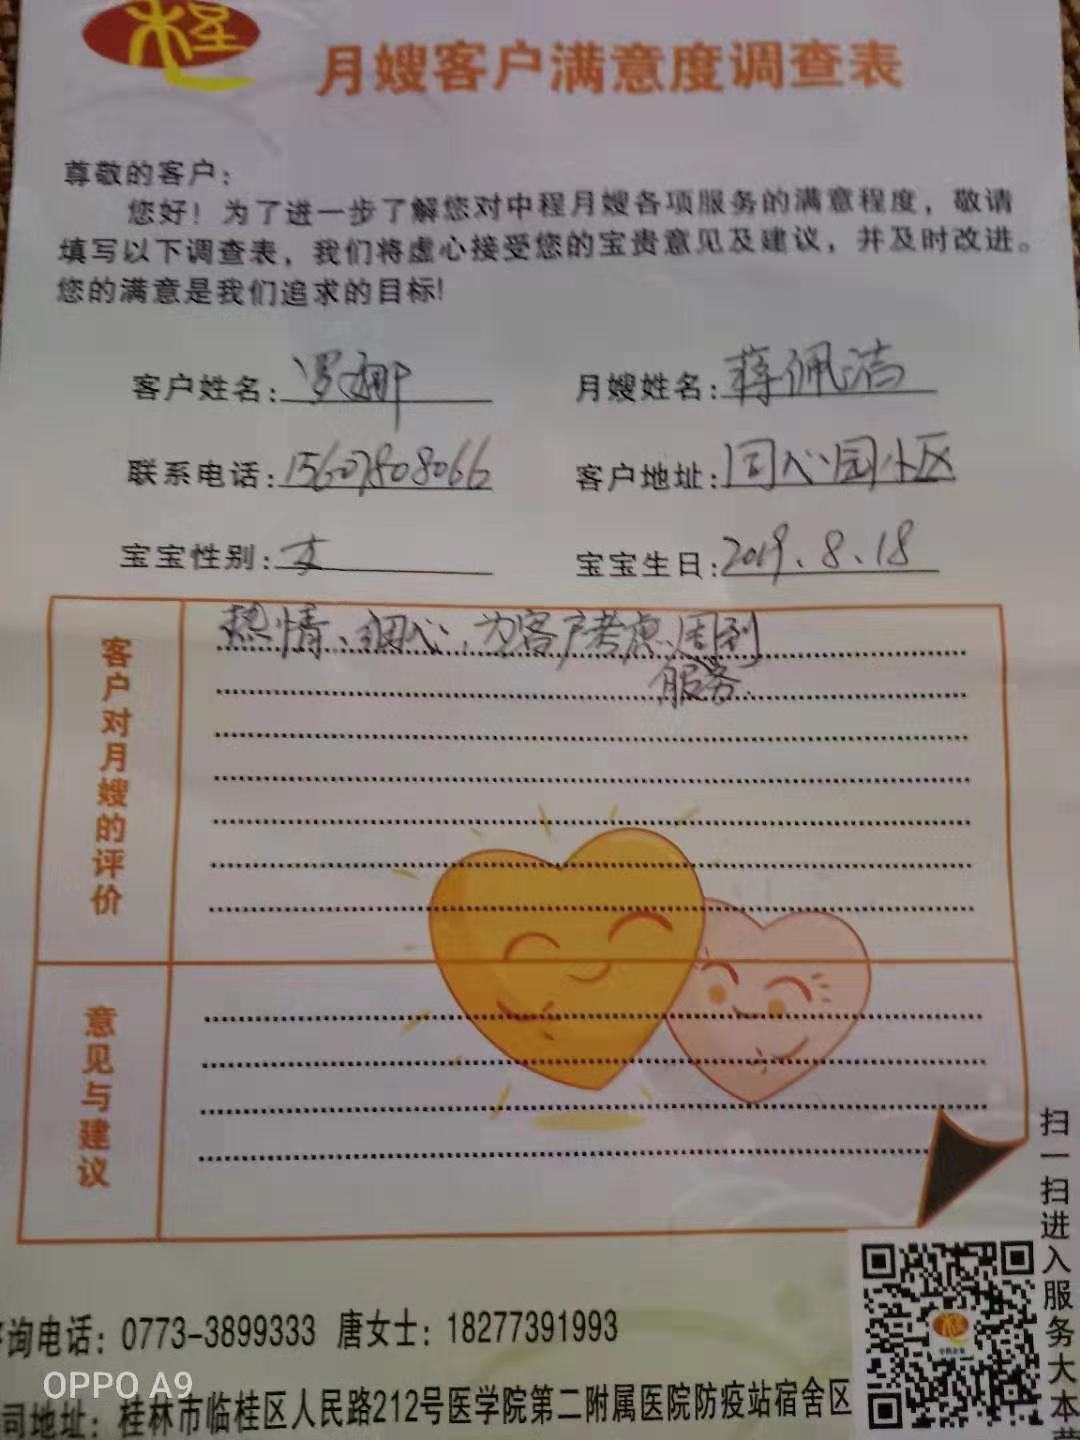 程
月嫂客户满意度调查表
尊敬的客户：
您好！为了进一步了解您对中程月嫂各项服务的满意程度，敬请
填写以下调查表，我们将虚心接受您的宝贵意见及建议，并及时改进。
您的满意是我们追求的目标!
客户姓名：罗娜 月嫂姓名：蒋佩洁
联系电话：15607808066 客户地址：同心园小区
宝宝性别：女 宝宝生日：2019.8.18
客户对月嫂的评价
热情、细心，为客户考虑、周到
服务.
意见与建议
扫一扫进入服务大本营
咨询电话：0773-3899333 唐女士：18277391993
司地址：桂林市临桂区人民路212号医学院第二附属医院防疫站宿舍区
OPPO A9